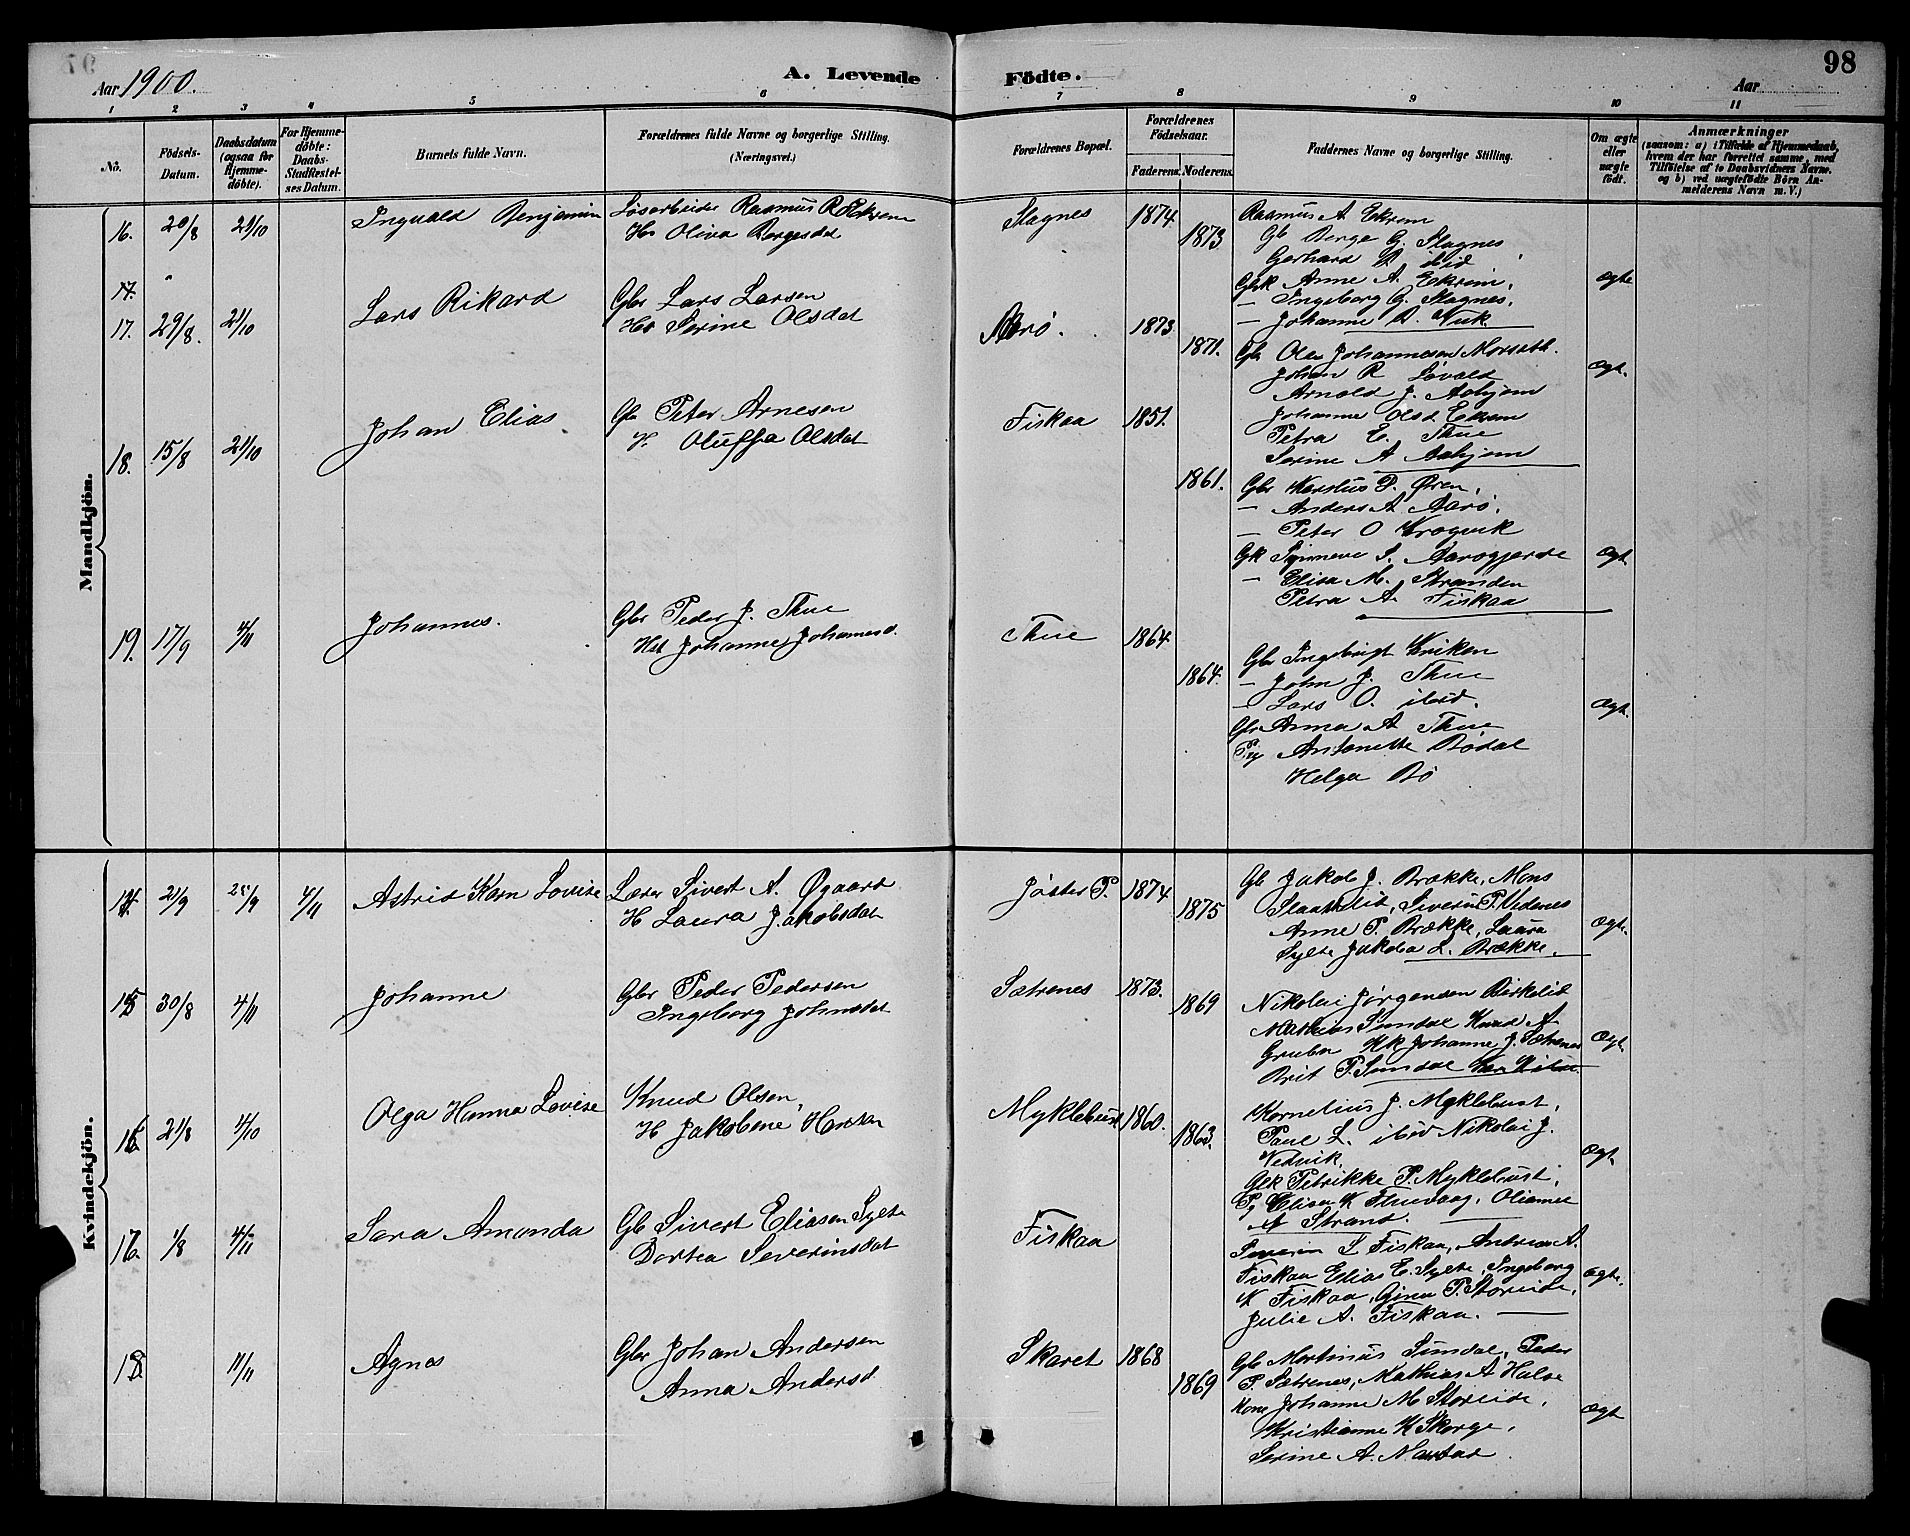 Aar 1900.
A. Levende Födte.
Aar
98
1 2 3 4 5 6 7 8 9 10 11
No.
Födsels-Datum.
Daabsdatum (ogsaa for Hjemme-döbte).
For Hjemme-döbte: Daabs-Stadfæstel-ses Datum.
Barnets fulde Navn.
Forældrenes fulde Navne og borgerlige Stilling. (Næringsvei.)
Forældrenes Bopæl.
Forældrenes Födselsaar.
Faderens. Moderens.
Faddernes Navne og borgerlige Stilling.
Om ægte eller uægte födt.
Anmærkninger
(saasom: a) i Tilfælde af Hjemmedaab,
hvem der har forrettet samme, med
Tilföielse af to Daabsvidners Navne,
og b) ved uægtefödte Börn An-
melderens Navn m. V.)
Mandkjön.
16. 20/8 21/10 Ingvald Benjamin
Løsarbeider Rasmus R Ekrem
Hs Oliva Bergesdat
Slagnes 1874 1873
Rasmus A Ekrem
Gb Berge G. Slagnes,
Gerhard B ibid
Gbk Anne A. Ekrem,
— Ingeborg G. Slagnes,
— Johanne B.
ægte
17.
17. 29/8. 21/10 Lars Rikard
Gbr Lars Larsen
Hs Serine Olsdat
Aarø. 1873 1871.
Gbr Ole Johannesen Morseth.
Johan R Løvold
Arnold J. Aahjem
Johanne Olsd Ekrem
Petra E. Thue
Serine A Aahjem
Ægt.
18. 15/8 21/10 Johan Elias
Gbr Peter Arnesen
H. Oluffa Olsdat
Fiskaa 1851. 1861.
Gbr Karolus P. Øren,
— Anders A Aarø,
— Peter O Krogvik
Gk Synneve S. Aarøgjerde
— Elisa M. Stranden
Petra A. Fiskaa
Ægt.
19. 17/9 4/11 Johannes.
Gbr Peder J. Thue
Hst Johanne Johannesd.
Thue 1864 1864.
Gbr Ingebrigt Eriken
— John J. Thue
— Lars O. ibid.
Gbr Anna A Thue
Pg Antonette Bødal
Helga Bø
Ægt.
Kvindekjön.
14. 21/9 25/9 4/11 Astrid Karn Lovise
Lærer Sivert A. Øgaard
H Laura Jakobsdat
Jølster P. 1874 1875
Gb Jakob J. Brække, Mons
Slaattelid, Severin P. Vedenes
Anne P. Brække, Laura
Sylte Jakoba L. Brække.
Ægt.
15 30/8 4/11 Johanne
Gbr Peder Pedersen
Ingeborg Johnsdat
Sætrenes 1873. 1869
Nikolai Jørgensen Birkelid
Mathias Sundal Knud A.
Gruben Kk Johanne J. Sætrenes
Brit P. Sundal
Ægt.
16 21/8 4/10 Olga Hanna Lovise
Knud Olsen,
H Jakobine Hansen
Myklebust 1860. 1863.
Kornelius J. Myklebust,
Paul L. ibid Nikolai J.
Vedvik,
Gbk Petrikke P. Myklebust,
Pg Elisa K Thuevaag, Oliame
A Strand.
Ægt.
17. 1/8 4/11 Sara Amanda
Gb Sivert Eliasen Sylte
Dortea Severinsdat
Fiskaa
Severin S Fiskaa, Andreas A.
Fiskaa Elias E. Sylte, Ingeborg
K Fiskaa, Gina P. Storeide,
Julie A. Fiskaa.
Ægte.
18. 11/11 Agnes
Gbr Johan Andersen
Anna Andersd
Skaret 1868 1869
Gb Martinus Sundal, Peder
P. Sætrenes, Mathias A Halse
Kone Johanne M Storeide,
Kristianne K Skorge,
Serine A. Mastad
Ægt